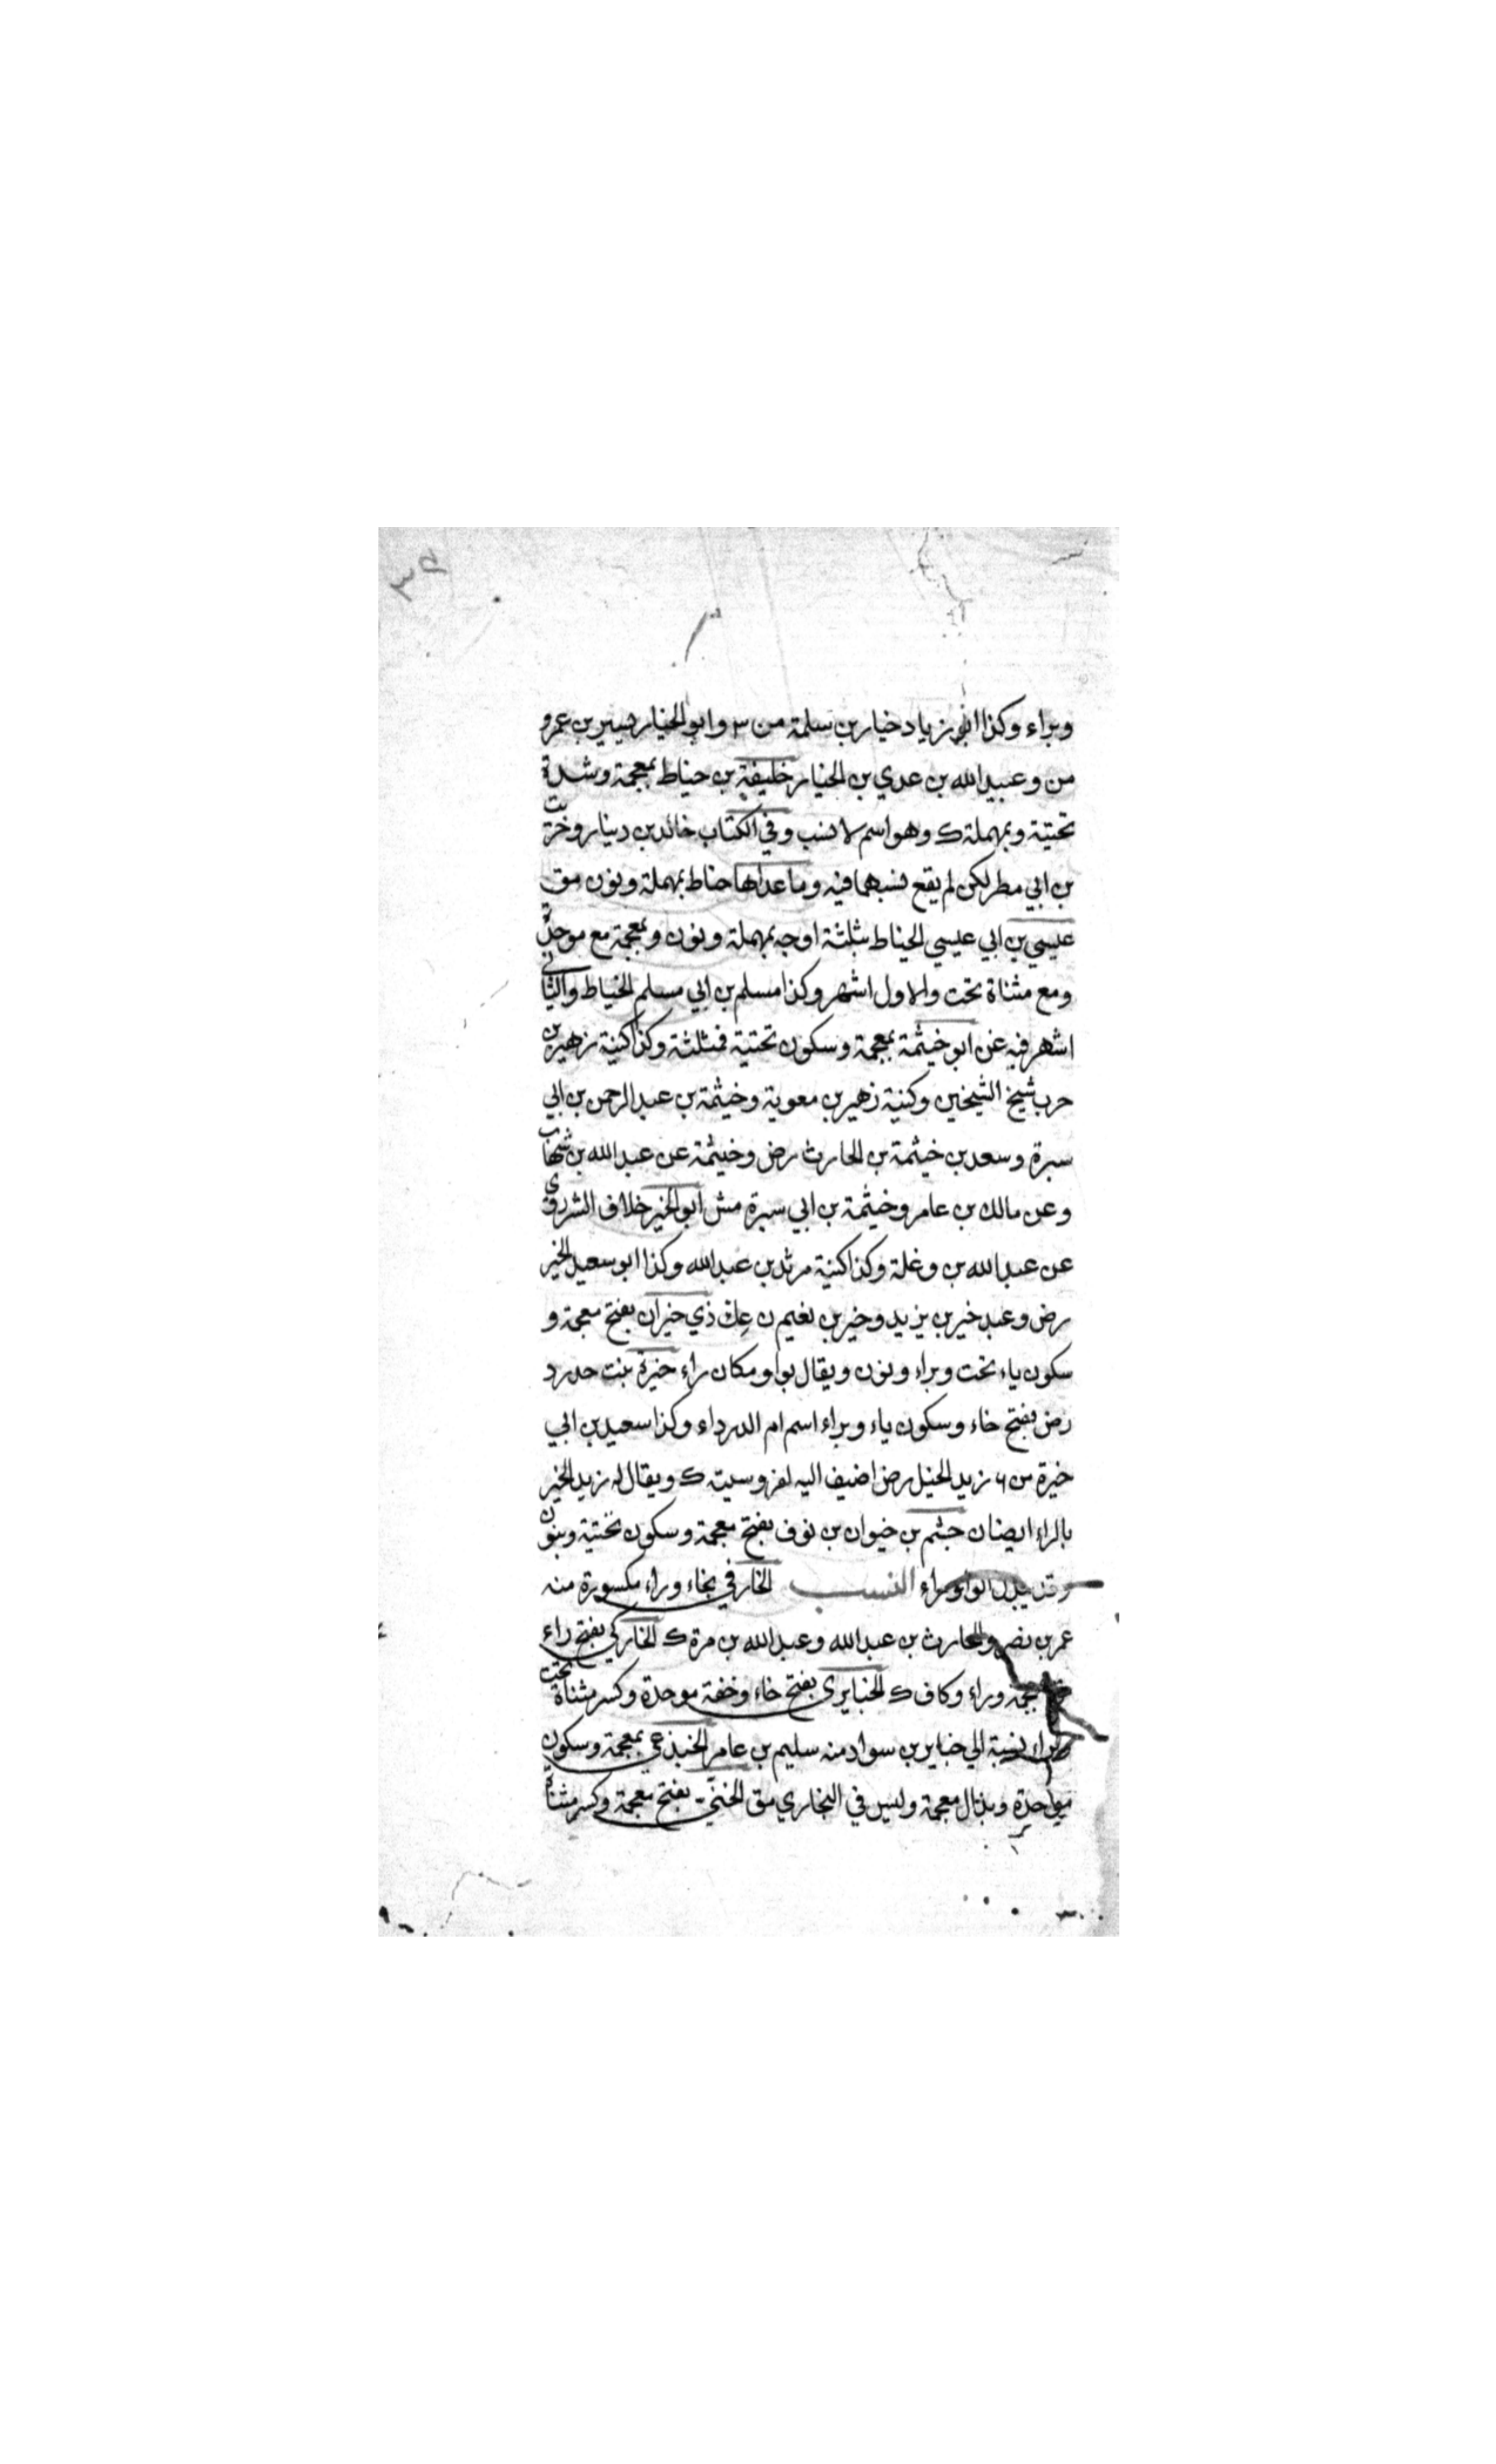 ٣٥
وبراء وكذا ابو زياد خيار بن سلمة من ٣ وابو الخيار يسير بن عمرو
من وعبيد الله بن عدي بن الخيار خليفة بن خياط بمعجمة وشدة
تحتية وبمهملة ك وهو اسم لا نسب وفي الكتاب خالد بن دينار وخرت
بن ابي مطر لكن لم يقع نسبهما فيه وما عداها حناط بمهملة ونون مق
عيسي بن ابي عيسي الحناط بثلثة اوجه بمهملة ونون وبمعجمة مع موحدة
ومع مثناة تحت والاول اشهر وكذا مسلم بن ابي مسلم الخياط والثاني
اشهر فيه عن ابو خيثمة بمعجمة وسكون تحتية فمثلثة وكذا كنية زهير بن
حرب شيخ الشيخين وكنية زهير بن معوية وخيثمة بن عبد الرحمن بن ابي
سبرة وسعد بن خيثمة بن الحارث رض وخيثمة عن عبد الله بن شهاب
وعن مالك بن عامر وخيثمة بن ابي سبرة مش ابو الخير خلاف الشر روى
عن عبد الله بن وعلة وكذا كنية مرثد بن عبد الله وكذا ابو سعيد الخير
رض وعبد خير بن يزيد وخير بن نعيم ن عك ذي خيران بفتح معجمة و
سكون ياء تحت وبراء ونون ويقال بواو مكان راء خيرة بنت حدرد
رض بفتح خاء وسكون ياء وبراء اسم ام الدرداء وكذا سعيد بن ابي
خيرة من ٦ زيد الخيل رض اضيف اليه لفروسيته ك ويقال له زيد الخير
بالراء ايضا ن جشم بن خيوان بن نوف بفتح معجمة وسكون تحتية وبنون
وقد يبدل الواو براء النسب الخارفي بخاء وراء مكسورة منه
عمر بن نصر والحارث بن عبد الله وعبد الله بن مرة ك الخاركي بفتح راء
وراء وكاف ك الخبايري بفتح خاء وخفة موحدة وكسر مثناة تحت
وبراء نسبة الي خباير بن سواد منه سليم بن عامر الخبذعي بمعجمة وسكون
موحدة وبذال معجمة وليس في البخاري مق الختي بفتح معجمة وكسر مثناة